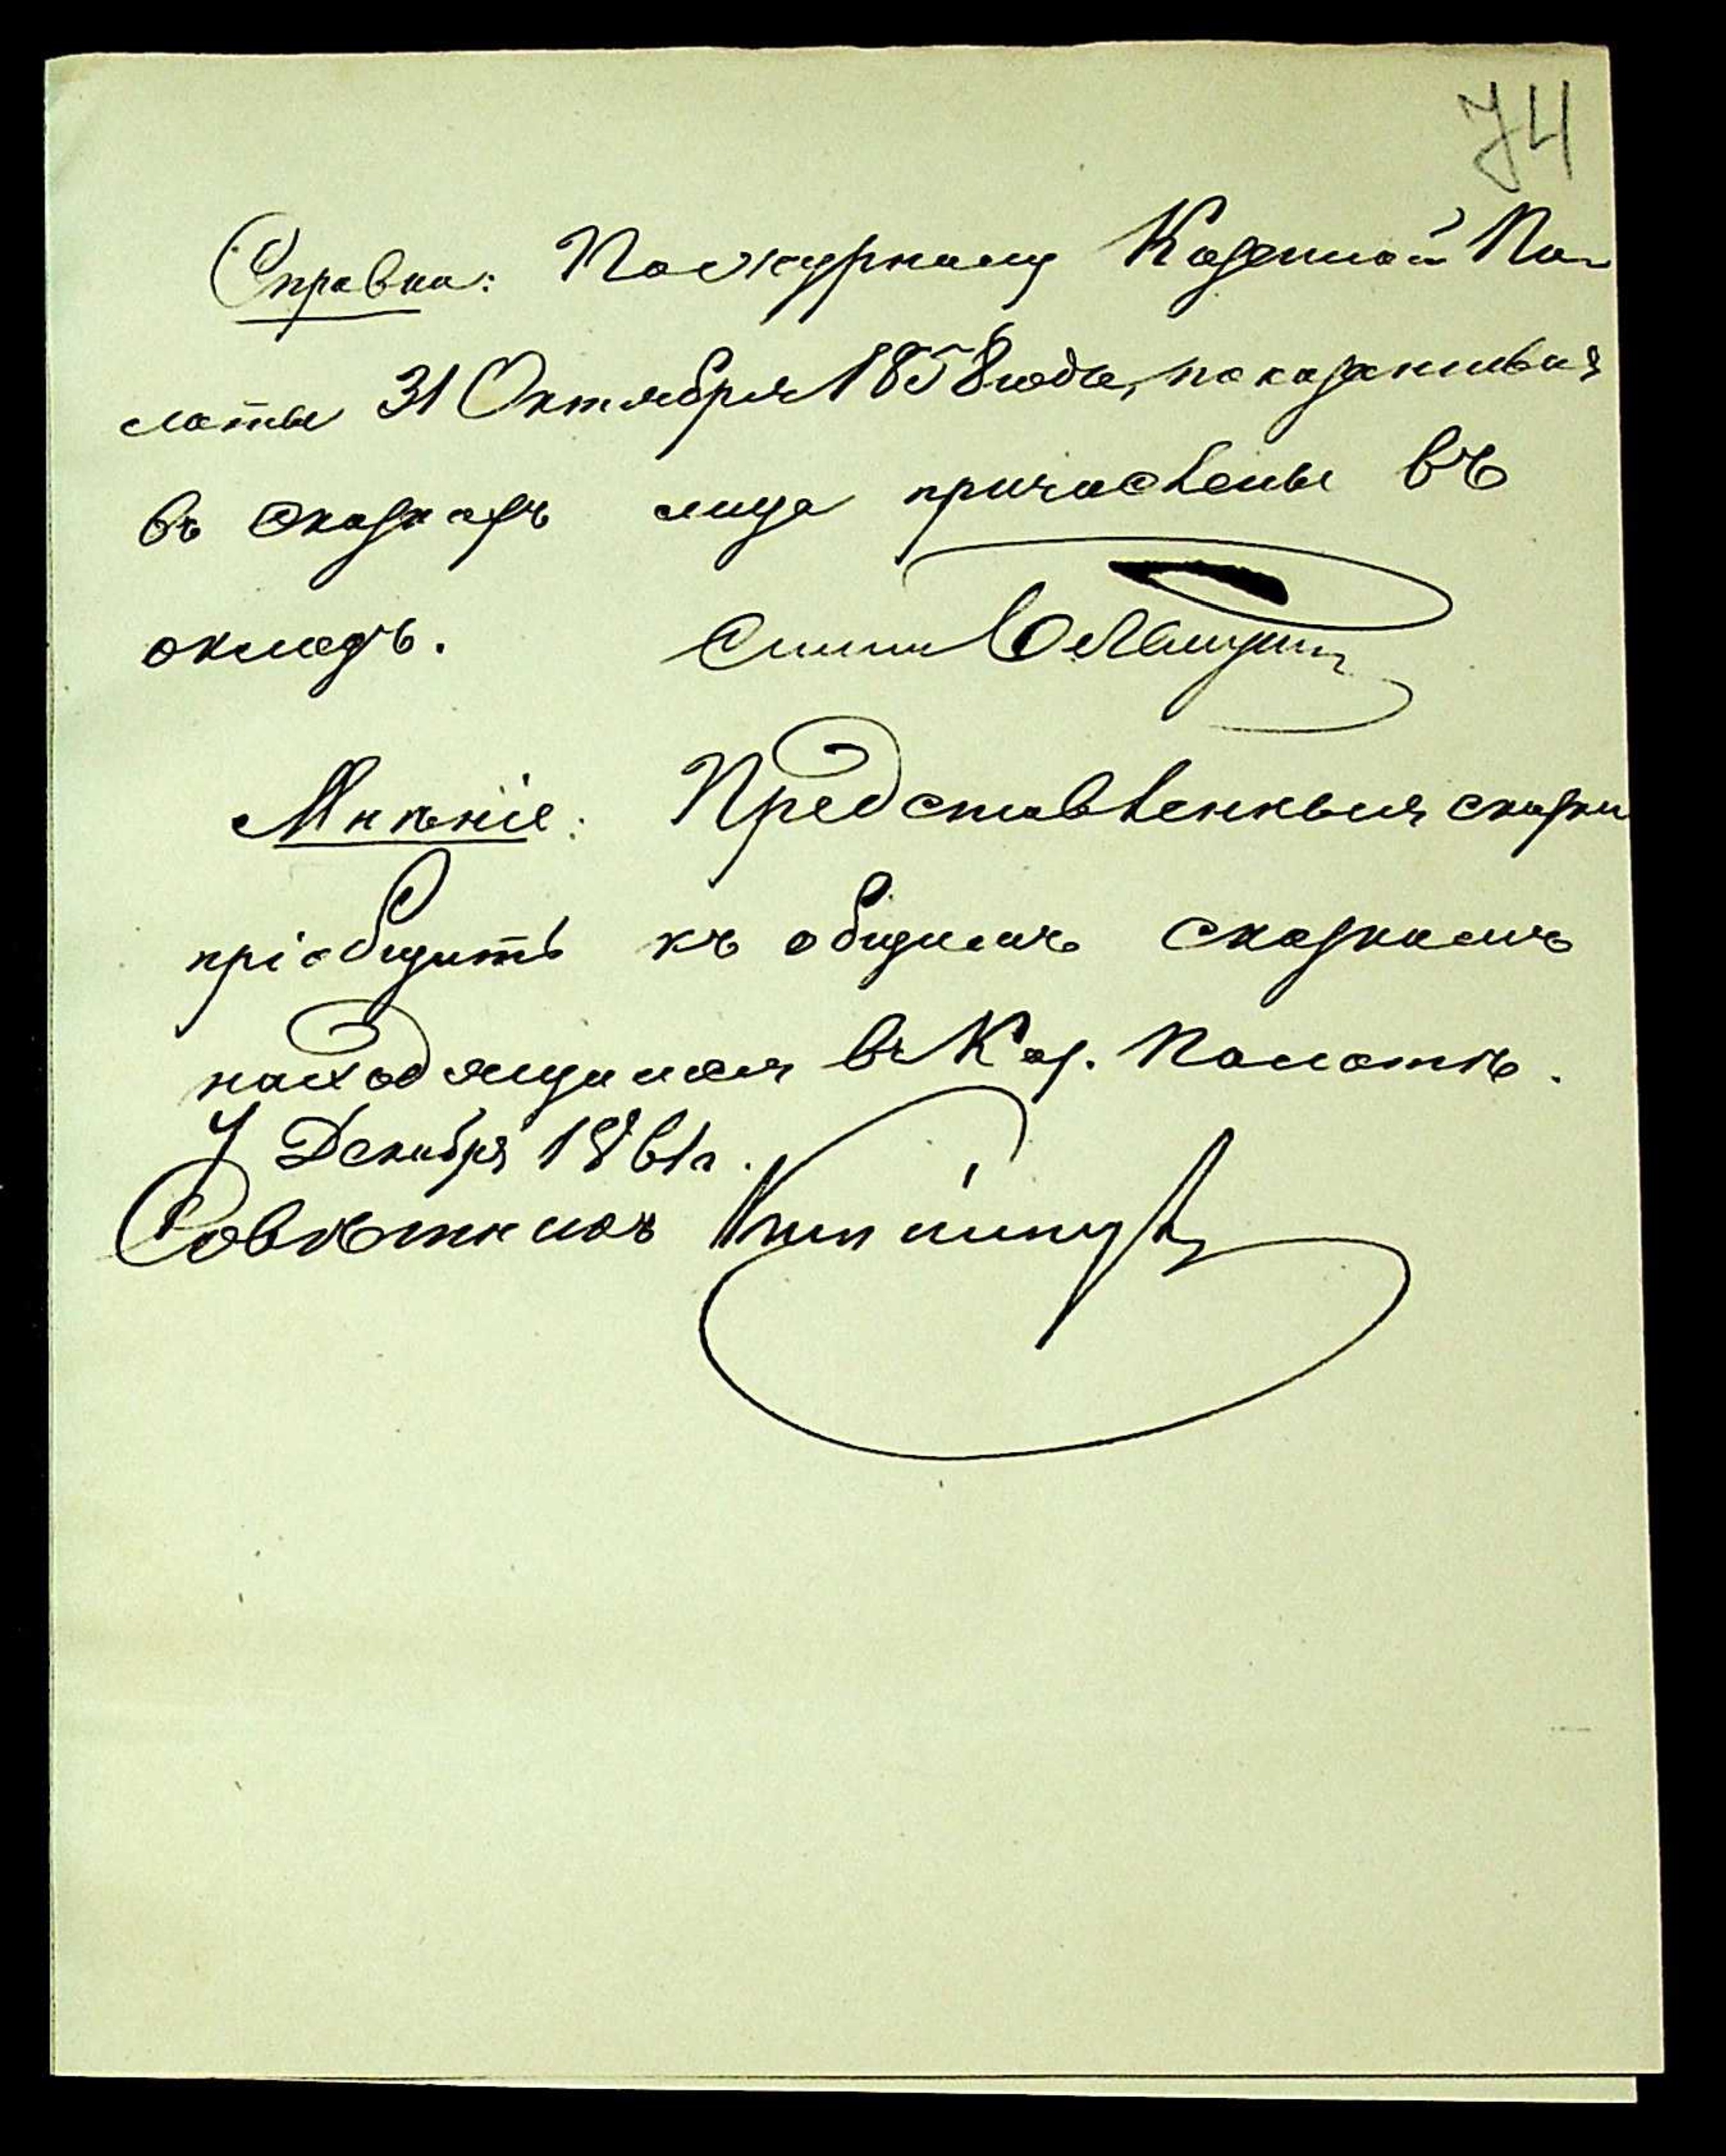 74
Справка: По журналу Казенной Па-
латы 31 Октября 1858 года, показанныя
въ сказкахъ лица причислены въ
окладъ.
Мнѣніе: Представленныя сказки
пріобщить къ общимъ сказкамъ
находящимся въ Каз. Палатѣ.
7 Декабря 1861 г.
Совѣтникъ